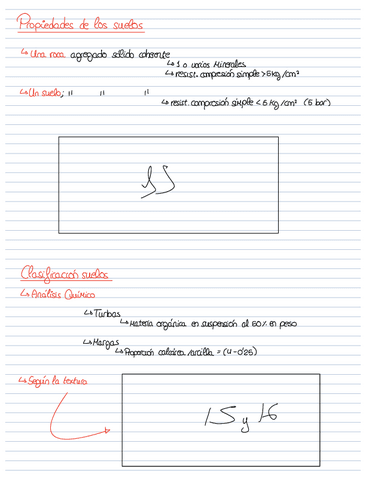 Propiedades de los suelos
↳ Una roca agregado sólido coherente
↳ 1 o varios Minerales
↳ resist. compresión simple >5kg/cm²
↳ Un suelo; " " "
↳ resist. compresión simple < 5kg/cm² (5 bar)
Clasificación suelos
↳ Análisis Químico
↳ Turbas
↳ Materia orgánica en suspensión al 50% en peso
↳ Margas
↳ Proporción caliza/arcilla = (4-0'25)
↳ Según la textura
15 y 16